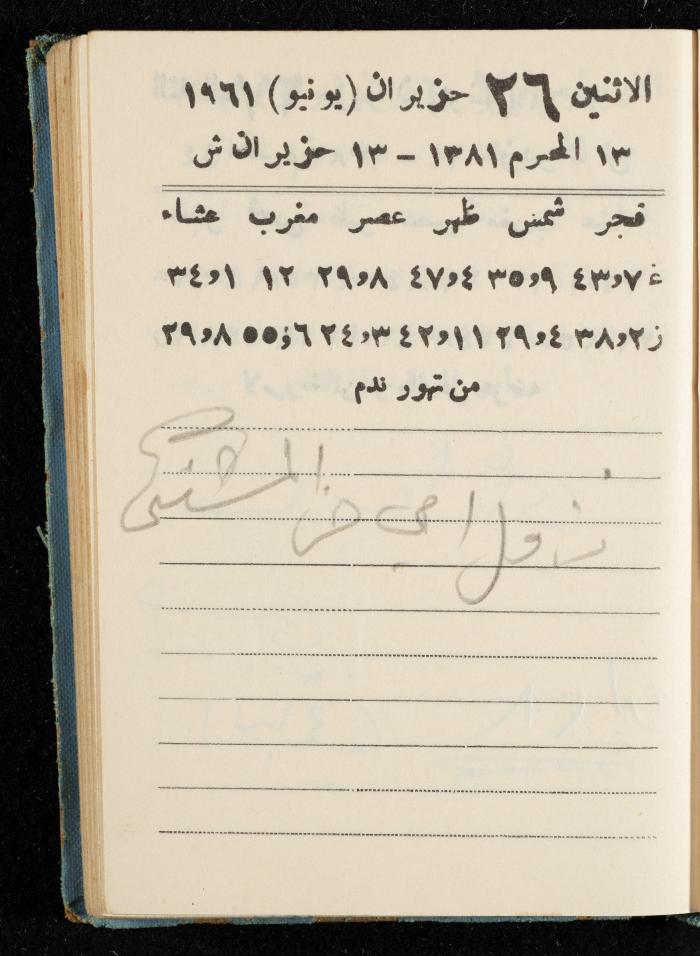 الاثنين ٢٦ حزيران (يونيو) ١٩٦١
١٣ المحرم ١٣٨١ – ١٣ حزيران ش
فجر شمس ظهر عصر مغرب عشاء
غ ٧و٤٣ ٩و٣٥ ٤و٤٧ ٨و٢٩ ١٢ ١و٣٤
ز ٢و٣٨ ٤و٢٩ ١١و٤٢ ٣و٢٤ ٦و٥٥ ٨و٢٩
من تهور ندم
نزول